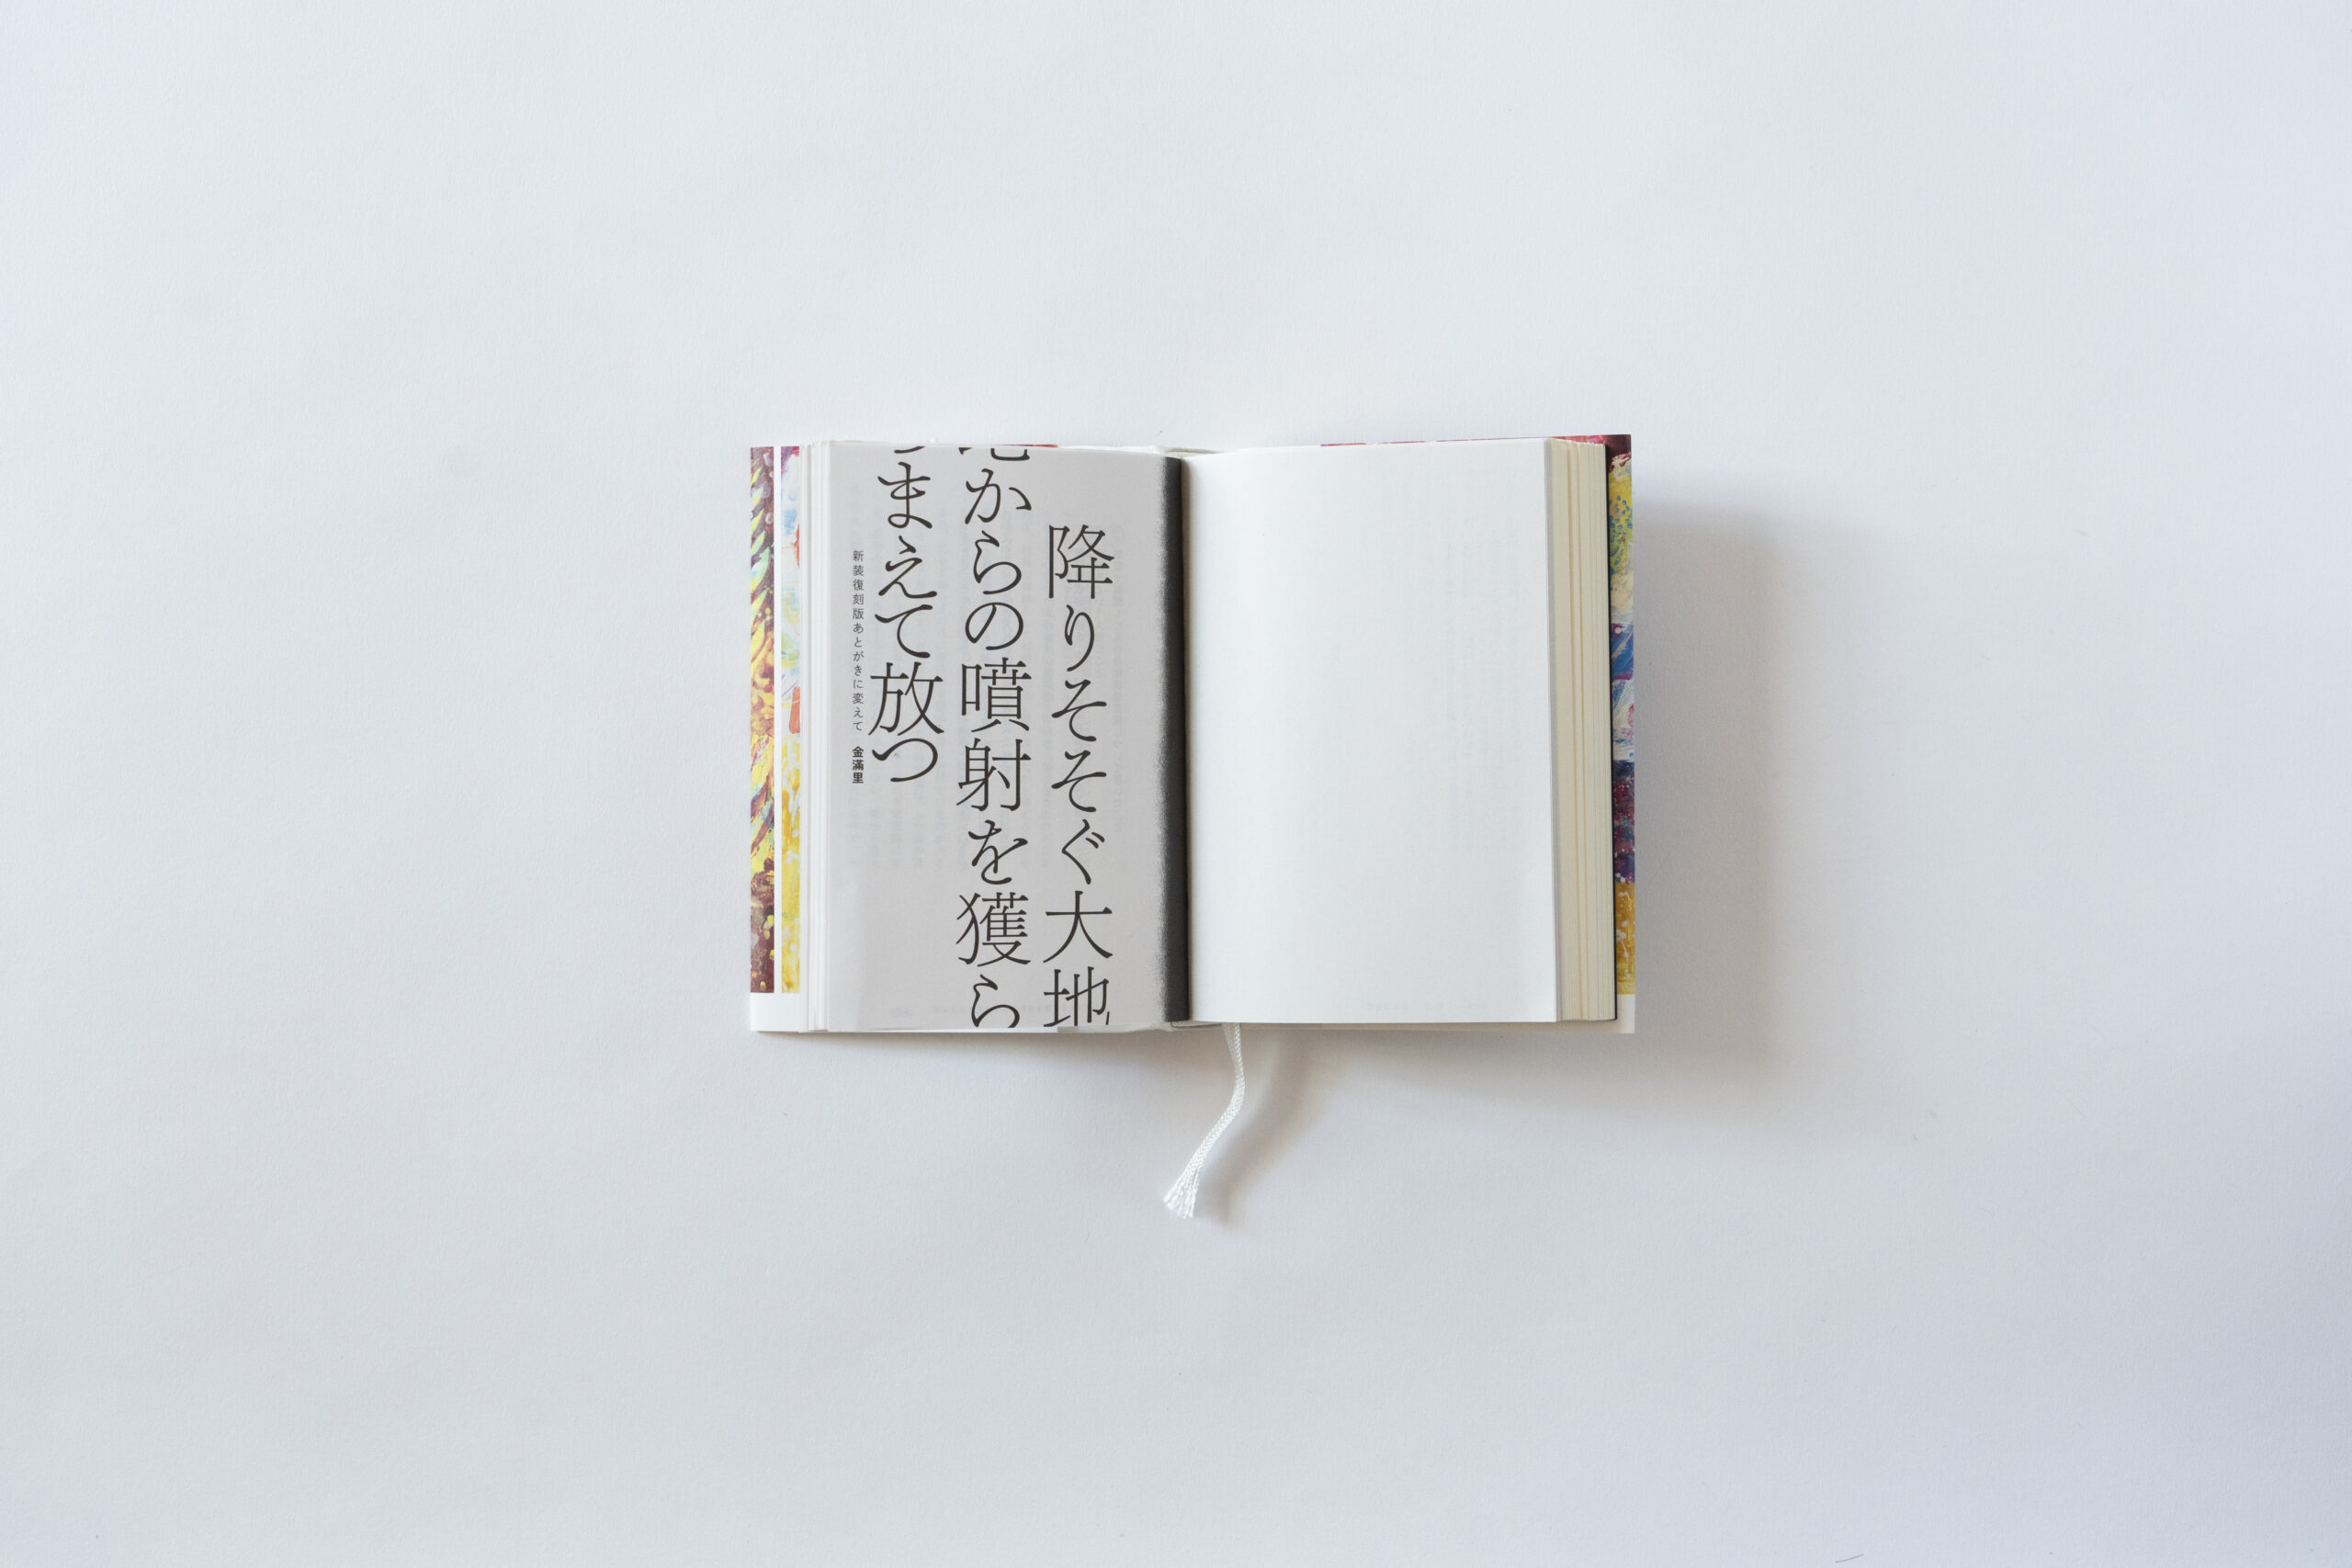 降りそそぐ大地
地からの噴射を獲ら
らまえて放つ
新装復刻版あとがきに変えて 金滿里